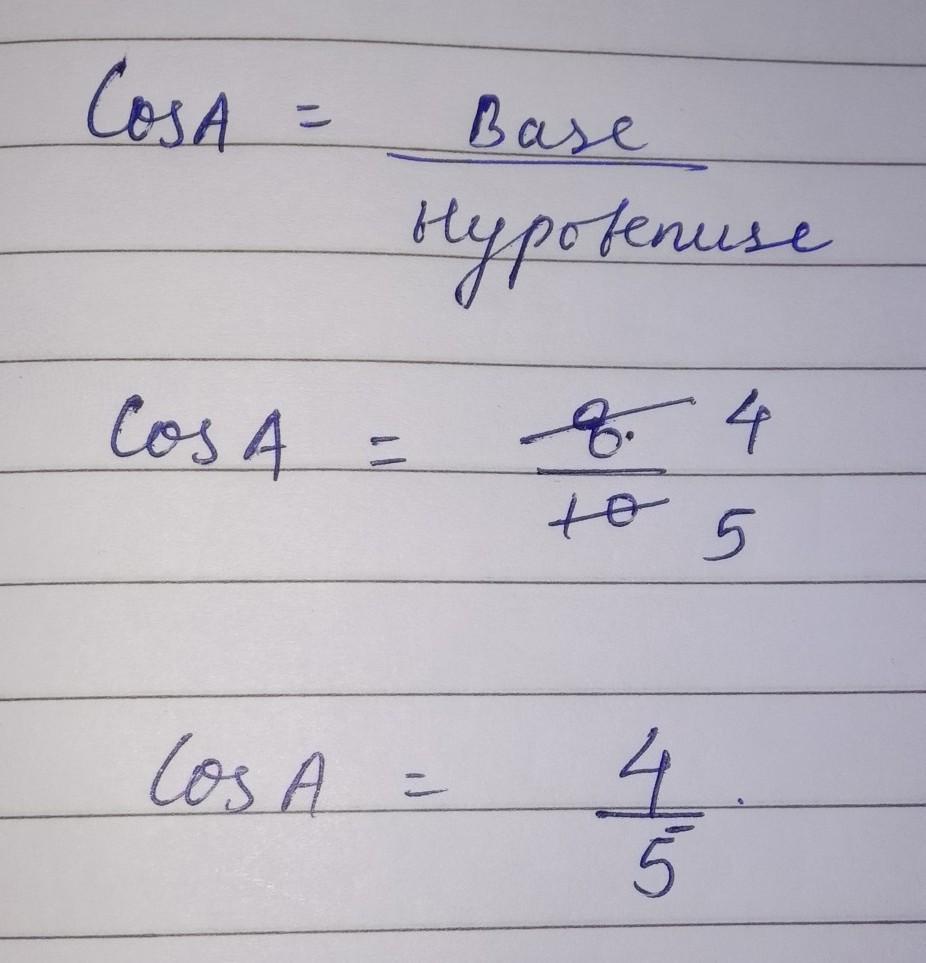 CosA = Base
Hypotenuse
Cos A = 8. 4
10 5
Cos A = 4 .
5